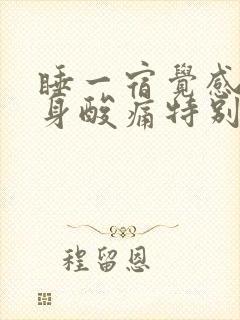 睡一宿覺感
身酸痛特别
程留恩